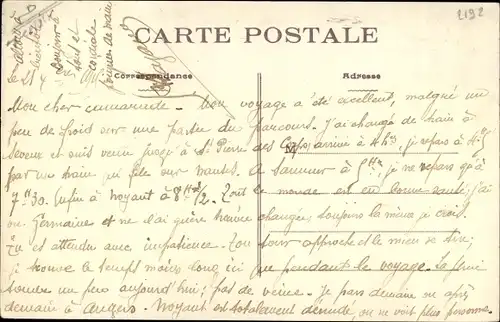 2192
CARTE POSTALE
Correspondance
Adresse
Mon cher camarade – Mon voyage a été excellent, malgré un
peu de froid sur une partie du parcours. J'ai changé de train à
et suis venu jusqu'à St Pierre des Corps, arrivé à 4h, je repars à 4h
par un train qui file sur Nantes. A Saumur à 5h, je ne repars qu'à
7h30. Enfin à Noyant à 8h 1/2. Tout le monde est en bonne santé; j'ai
vu Germaine et ne l'ai guère trouvée changée, toujours la même je crois.
Tu es attendu avec impatience. Ton tour approche et le mien se tire;
je trouve le temps moins long ici que pendant le voyage. La pluie
tombe un peu aujourd'hui; pas de veine. Je pars demain ou après
demain à Angers. Noyant est totalement dénudé, on ne voit plus personne.
bientôt
bonjour à
tous et
cordiale
poignée de main